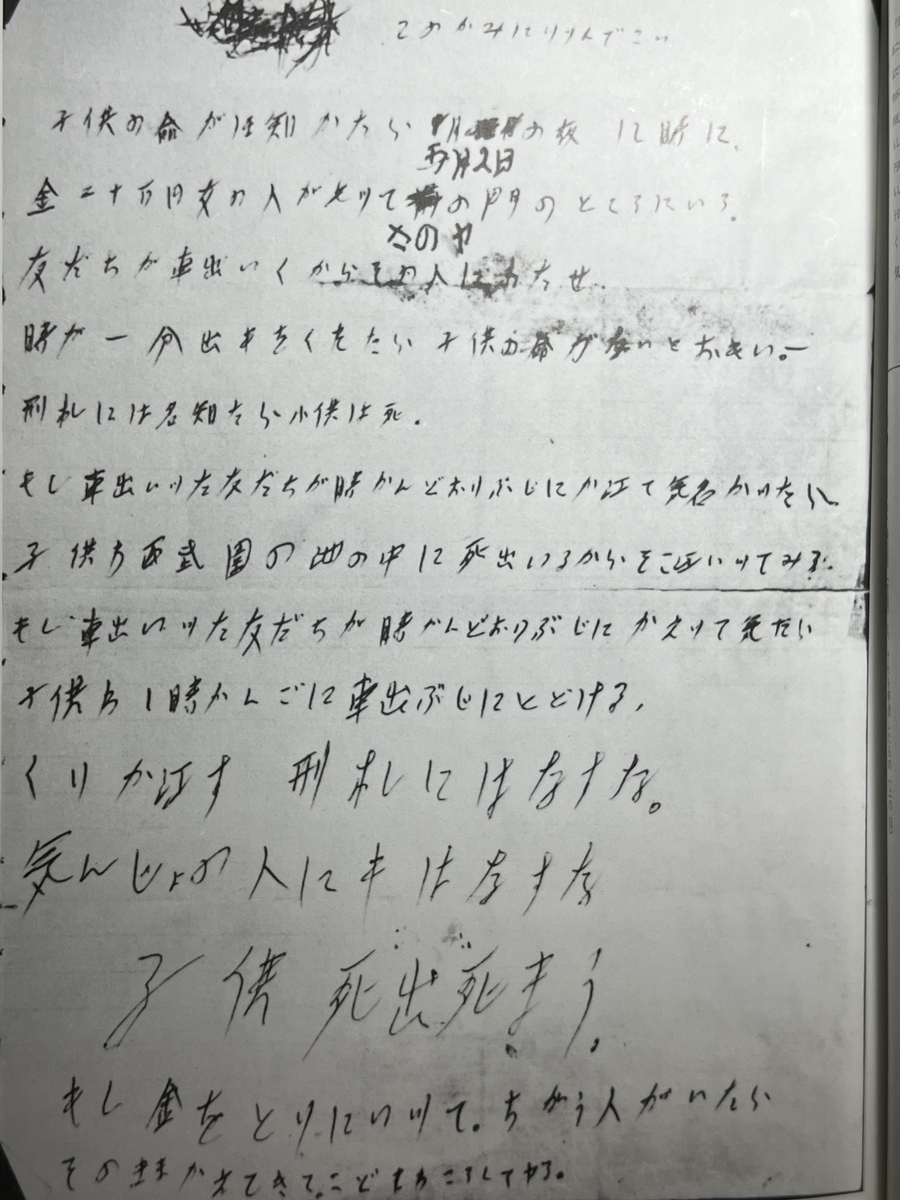 このかみにツツんでこい
子供の命がほ知かたら の夜12時に、
五月2日
金二十万円女の人がもツて の門のところにいろ。
さのヤ
友だちが車出いくからその人にわたせ。
時が一分出もをくれたら子供の命がないとおもい。一
刑札には名知たら小供は死。
もし車出いツた友だちが時かんどおりぶじにか江て気名かツたら
子供わ西武園の池の中に死出いるからそこ江いツてみろ。
もし車出いツた友だちが時かんどおりぶじにかえツて気たら
子供わ1時かんごに車出ぶじにとどける。
くりか江す 刑札にはなすな。
気んじょの人にもはなすな
子供死出死まう。
もし金をとりにいツて。ちがう人がいたら
そのままかえてきて。こどもわころしてヤる。